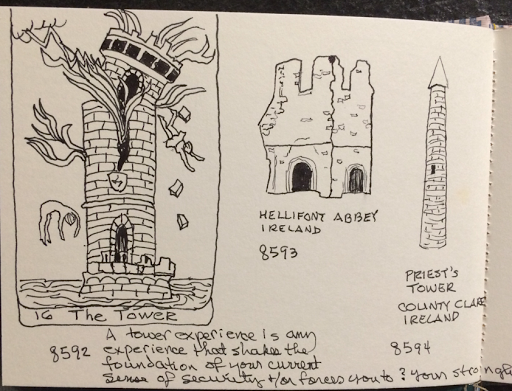 16 The Tower
HELLIFONT ABBEY
IRELAND
8593
PRIEST'S
TOWER
COUNTY CLARE
IRELAND
8594
8592
A tower experience is any
experience that shakes the
foundation of your current
sense of security &/or forces you to ? your